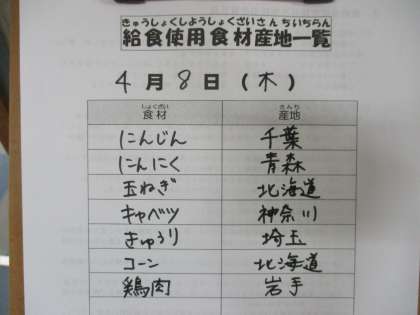 きゅうしょくしようしょくざいさんちいちらん
給食使用食材産地一覧
4月8日(木)
しょくざい さんち
食材 産地
にんじん 千葉
にんにく 青森
玉ねぎ 北海道
キャベツ 神奈川
きゅうり 埼玉
コーン 北海道
鶏肉 岩手